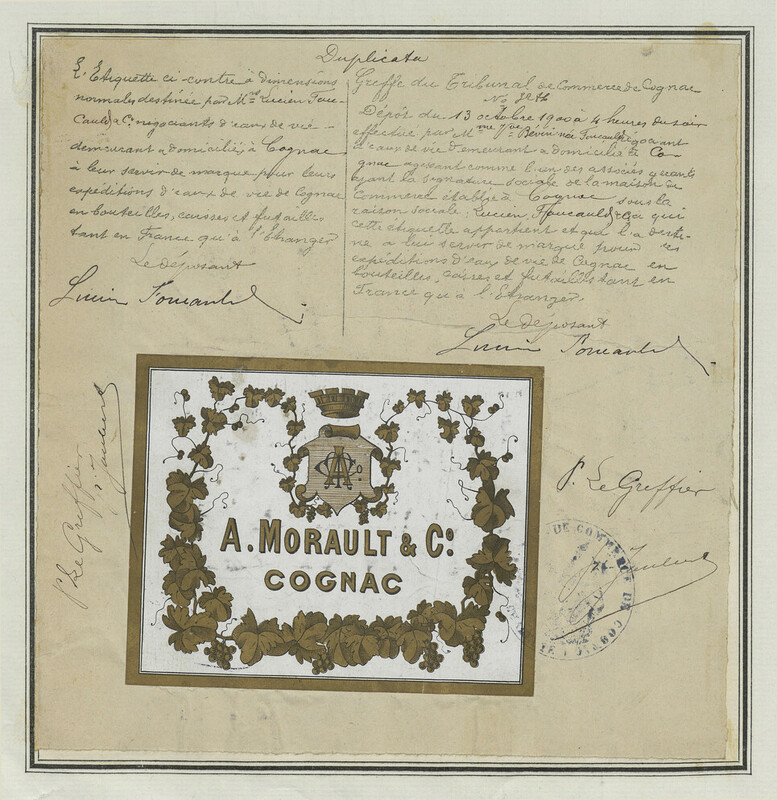 Duplicata
L'Etiquette ci-contre à dimensions
normales destinée par Mr Lucien Fou-
cauld & Co négociants d'eaux de vie
demeurant & domiciliés à Cognac
à leur servir de marque pour leurs
expéditions d'eaux de vie de Cognac
en bouteilles, caisses et futailles
tant en France qu'à l'Etranger
Le déposant
Lucien Foucauld
Greffe du Tribunal de Commerce de Cognac
No
Dépôt du 13 octobre 1900 à 4 heures du soir
effectué par Mme Vve née Foucauld négociant
d'eaux de vie demeurant & domicilié à Co-
gnac agissant comme l'un des associés gérants
ayant la signature sociale de la maison de
Commerce établie à Cognac sous la
raison sociale: Lucien Foucauld & Co à qui
cette étiquette appartient et qui l'a desti-
née à lui servir de marque pour ses
expéditions d'eaux de vie de Cognac en
bouteilles, caisses et futailles tant en
France qu'à l'Etranger.
Le déposant
Lucien Foucauld
P. Le Greffier
A. MORAULT & Co.
COGNAC
P. Le Greffier
DE COMMERCE DE COGNAC